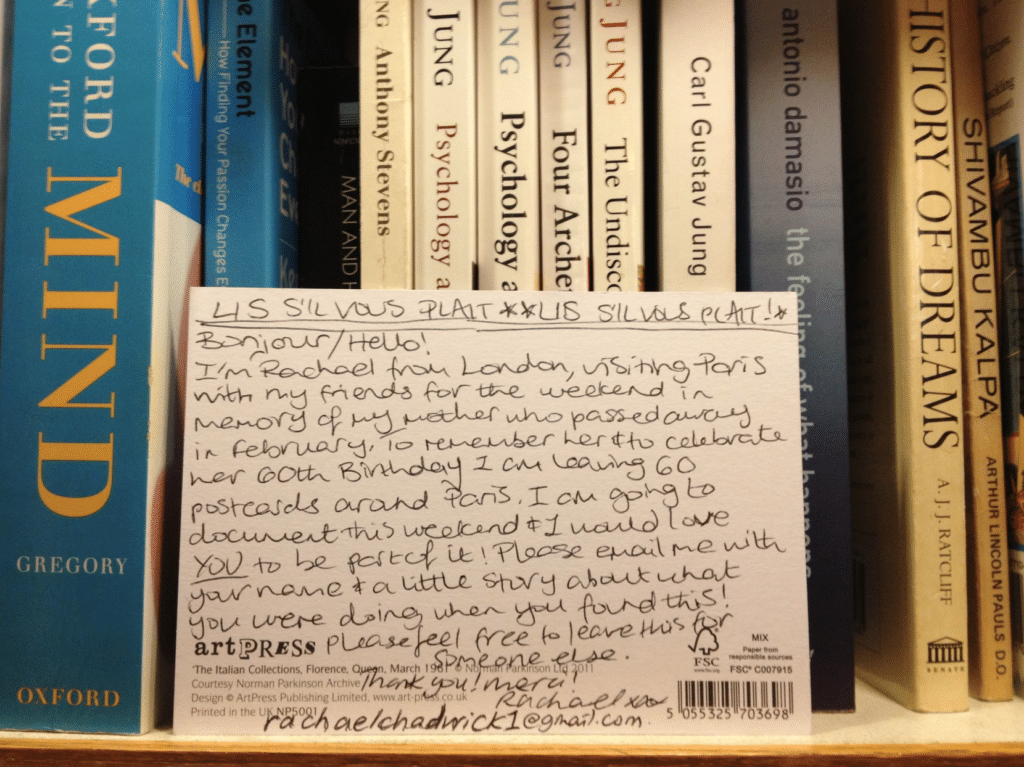 XFORD
N TO THE
MIND
GREGORY
OXFORD
The
e Element
How Finding Your Passion Changes E
MAN AND H
NG Anthony Stevens
JUNG Psychology a
UNG Psychology a
JUNG Four Archet
G JUNG The Undisco
Carl Gustav Jung
antonio damasio the feeling of what happens
HISTORY OF DREAMS A. J. J. RATCLIFF
SENATE
SHIVAMBU KALPA ARTHUR LINCOLN PAULS D.O.
LIS S'IL VOUS PLAIT **LIS S'IL VOUS PLAIT!*
Bonjour/Hello!
I'm Rachael from London, visiting Paris
with my friends for the weekend in
memory of my mother who passed away
in February. To remember her & to celebrate
her 60th Birthday I am leaving 60
postcards around Paris. I am going to
document this weekend & I would love
YOU to be part of it! Please email me with
your name & a little story about what
you were doing when you found this!
artPRESS Please feel free to leave this for
someone else.
Thank you! merci!
Rachael xox
rachaelchadwick1@gmail.com
'The Italian Collections, Florence, Queen, March 1981 © Norman Parkinson Ltd 2011
Courtesy Norman Parkinson Archive
Design © ArtPress Publishing Limited, www.art-press.co.uk
Printed in the UK NP5001
FSC
www.fsc.org
MIX
Paper from
responsible sources
FSC® C007915
5 055325 703698